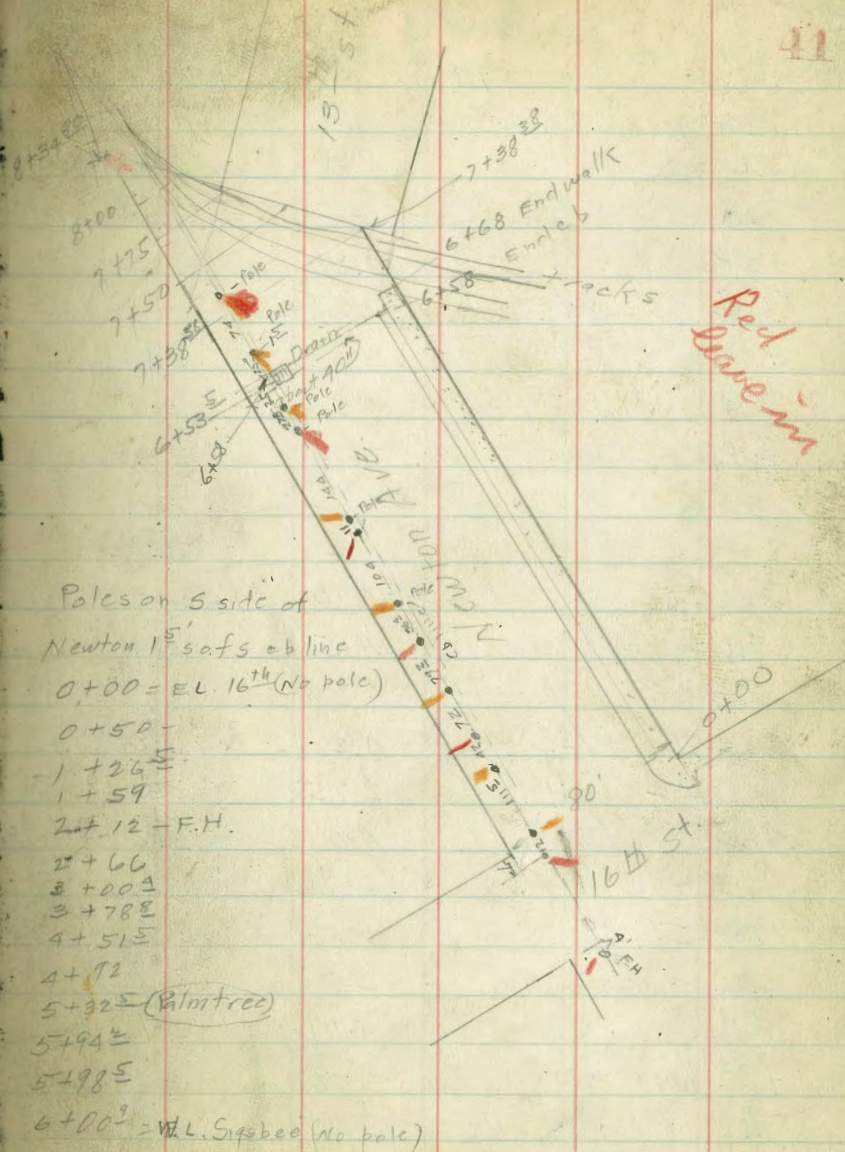 41
13th St
8+34
8+00
7+75
7+50
7+38
6+53 5
6+58
7+38 38
6+68 End walk
End cb
6+58
Tracks
Red
leave in
Pole
74
Pole
Drain
Pole
Pole
144
Pole
11
Newton Ave
104
Pole
Cb line
72
80'
0+00
16th St.
12
4'
F.H
Poles on S side of
Newton 1 5' s. of s cb line
0+00 = E.L. 16th (No pole)
0+50 -
1+26 5
1+59
2+12 - F.H.
2+66
3+00 4
3+78 8
4+51 5
4+92
5+32 5 (Palm tree)
5+94 2
5+98 5
6+00 9 = W.L. Sigsbee (No pole)